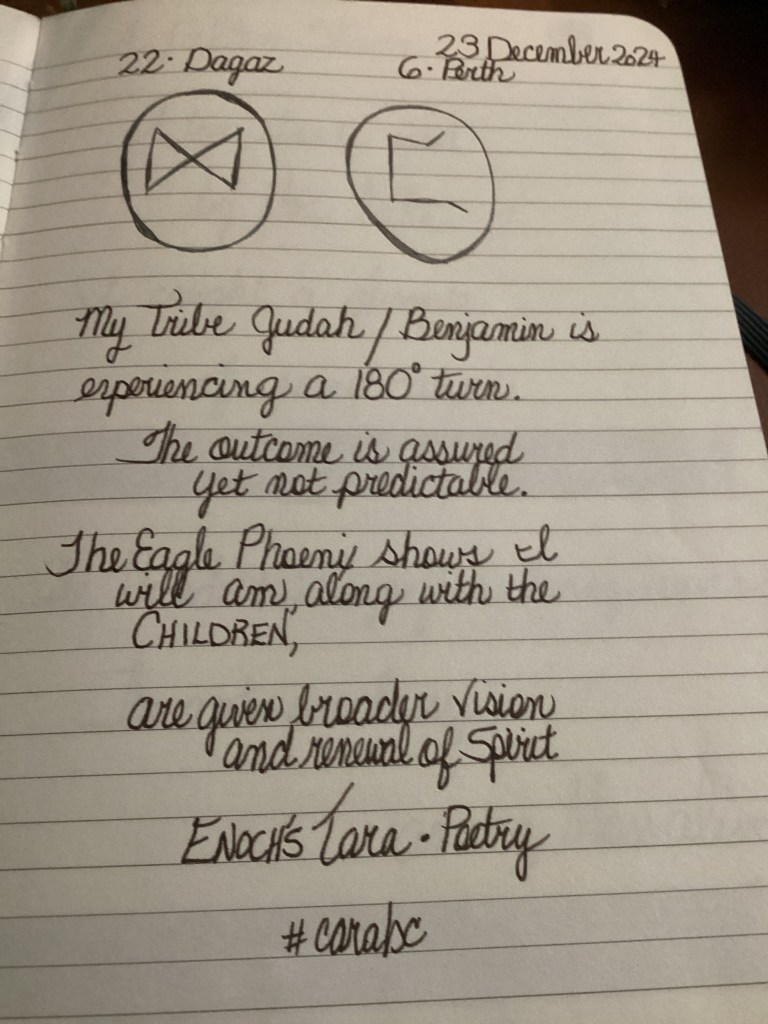 23 December 2024
22. Dagaz
6. Perth
My Tribe Judah / Benjamin is
experiencing a 180° turn.
The outcome is assured
yet not predictable.
The Eagle Phoenix shows I
will am, along with the
CHILDREN,
are given broader vision
and renewal of Spirit
ENOCH'S Tara • Poetry
#carabc